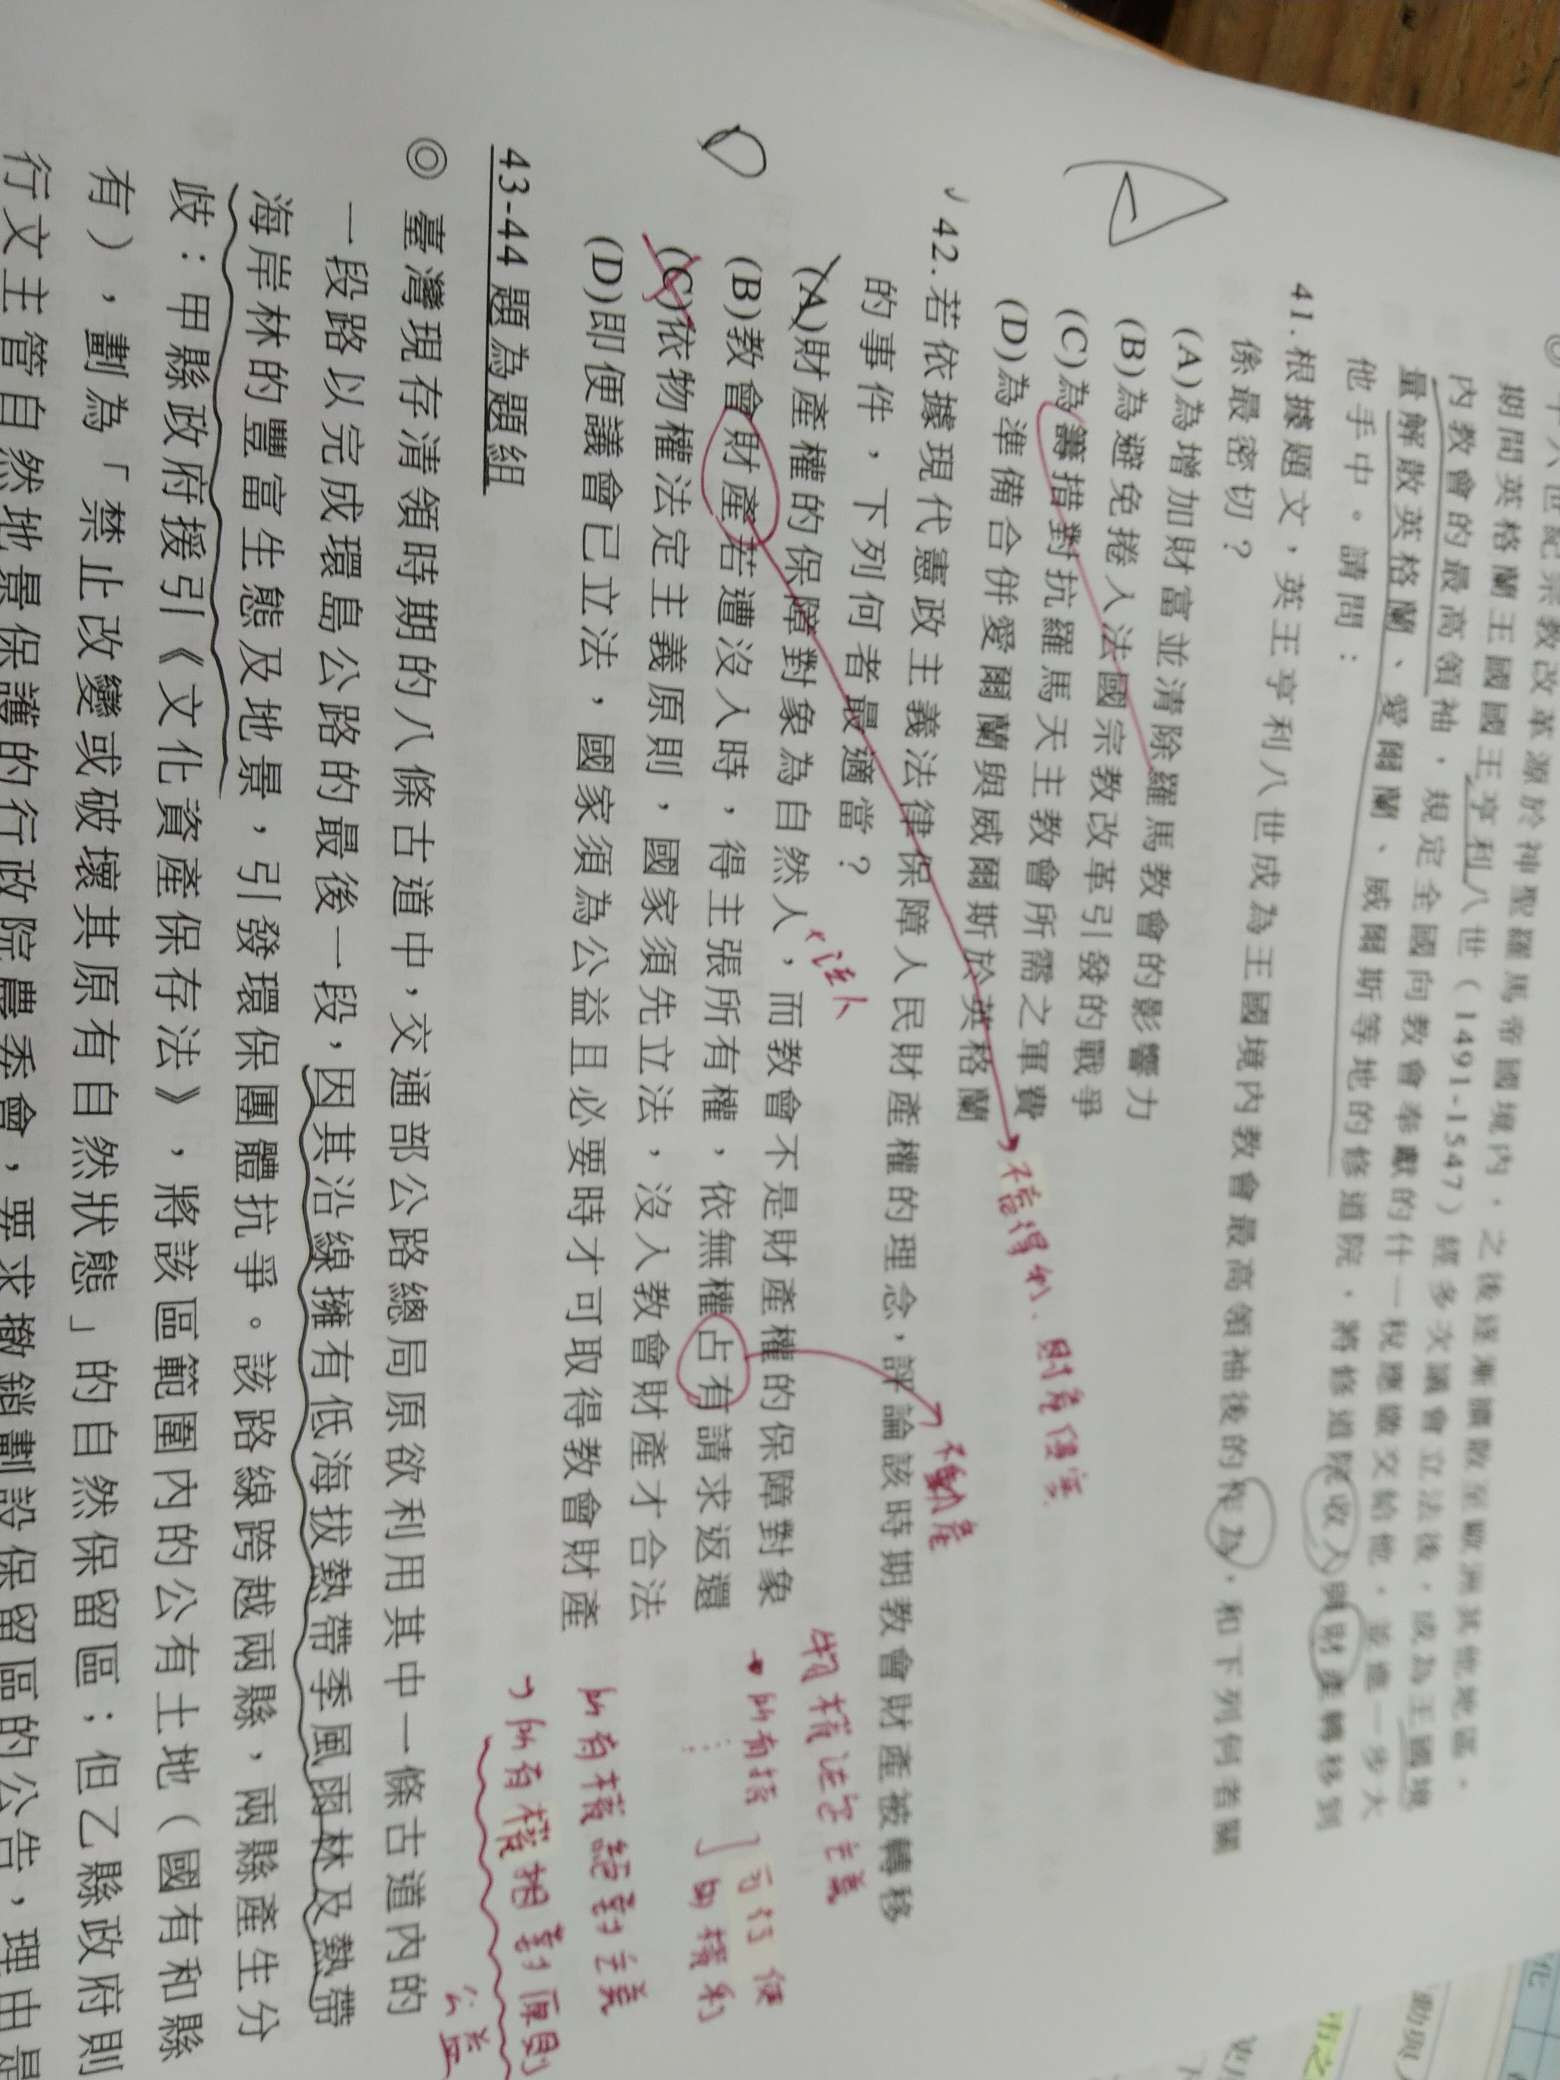 十六世紀宗教改革源於神聖羅馬帝國境內，之後逐漸擴散至歐洲其他地區。
期間英格蘭王國國王亨利八世（1491-1547）經多次議會立法後，成為王國境
內教會的最高領袖，規定全國向教會奉獻的什一稅應繳交給他，並進一步大
量解散英格蘭、愛爾蘭、威爾斯等地的修道院，將修道院收入與財產轉移到
他手中。請問：
41.根據題文，英王亨利八世成為王國境內教會最高領袖後的作為，和下列何者關
係最密切？
(A)為增加財富並清除羅馬教會的影響力
(B)為避免捲入法國宗教改革引發的戰爭
(C)為籌措對抗羅馬天主教會所需之軍費
(D)為準備合併愛爾蘭與威爾斯於英格蘭
A
不當得利、財產侵害
✓42.若依據現代憲政主義法律保障人民財產權的理念，評論該時期教會財產被轉移
的事件，下列何者最適當？
不動產
(A)財產權的保障對象為自然人，而教會不是財產權的保障對象
法人
(B)教會財產若遭沒入時，得主張所有權，依無權占有請求返還
(C)依物權法定主義原則，國家須先立法，沒入教會財產才合法
(D)即便議會已立法，國家須為公益且必要時才可取得教會財產
D
物權法定主義
所有權
可行使
的權利
所有權絕對主義
→所有權相對原則
公益
43-44題為題組
◎臺灣現存清領時期的八條古道中，交通部公路總局原欲利用其中一條古道內的
一段路以完成環島公路的最後一段，因其沿線擁有低海拔熱帶季風雨林及熱帶
海岸林的豐富生態及地景，引發環保團體抗爭。該路線跨越兩縣，兩縣產生分
歧：甲縣政府援引《文化資產保存法》，將該區範圍內的公有土地（國有和縣
有），劃為「禁止改變或破壞其原有自然狀態」的自然保留區；但乙縣政府則
行文主管自然地景保護的行政院農委會，要求撤銷劃設保留區的公告，理由是
化